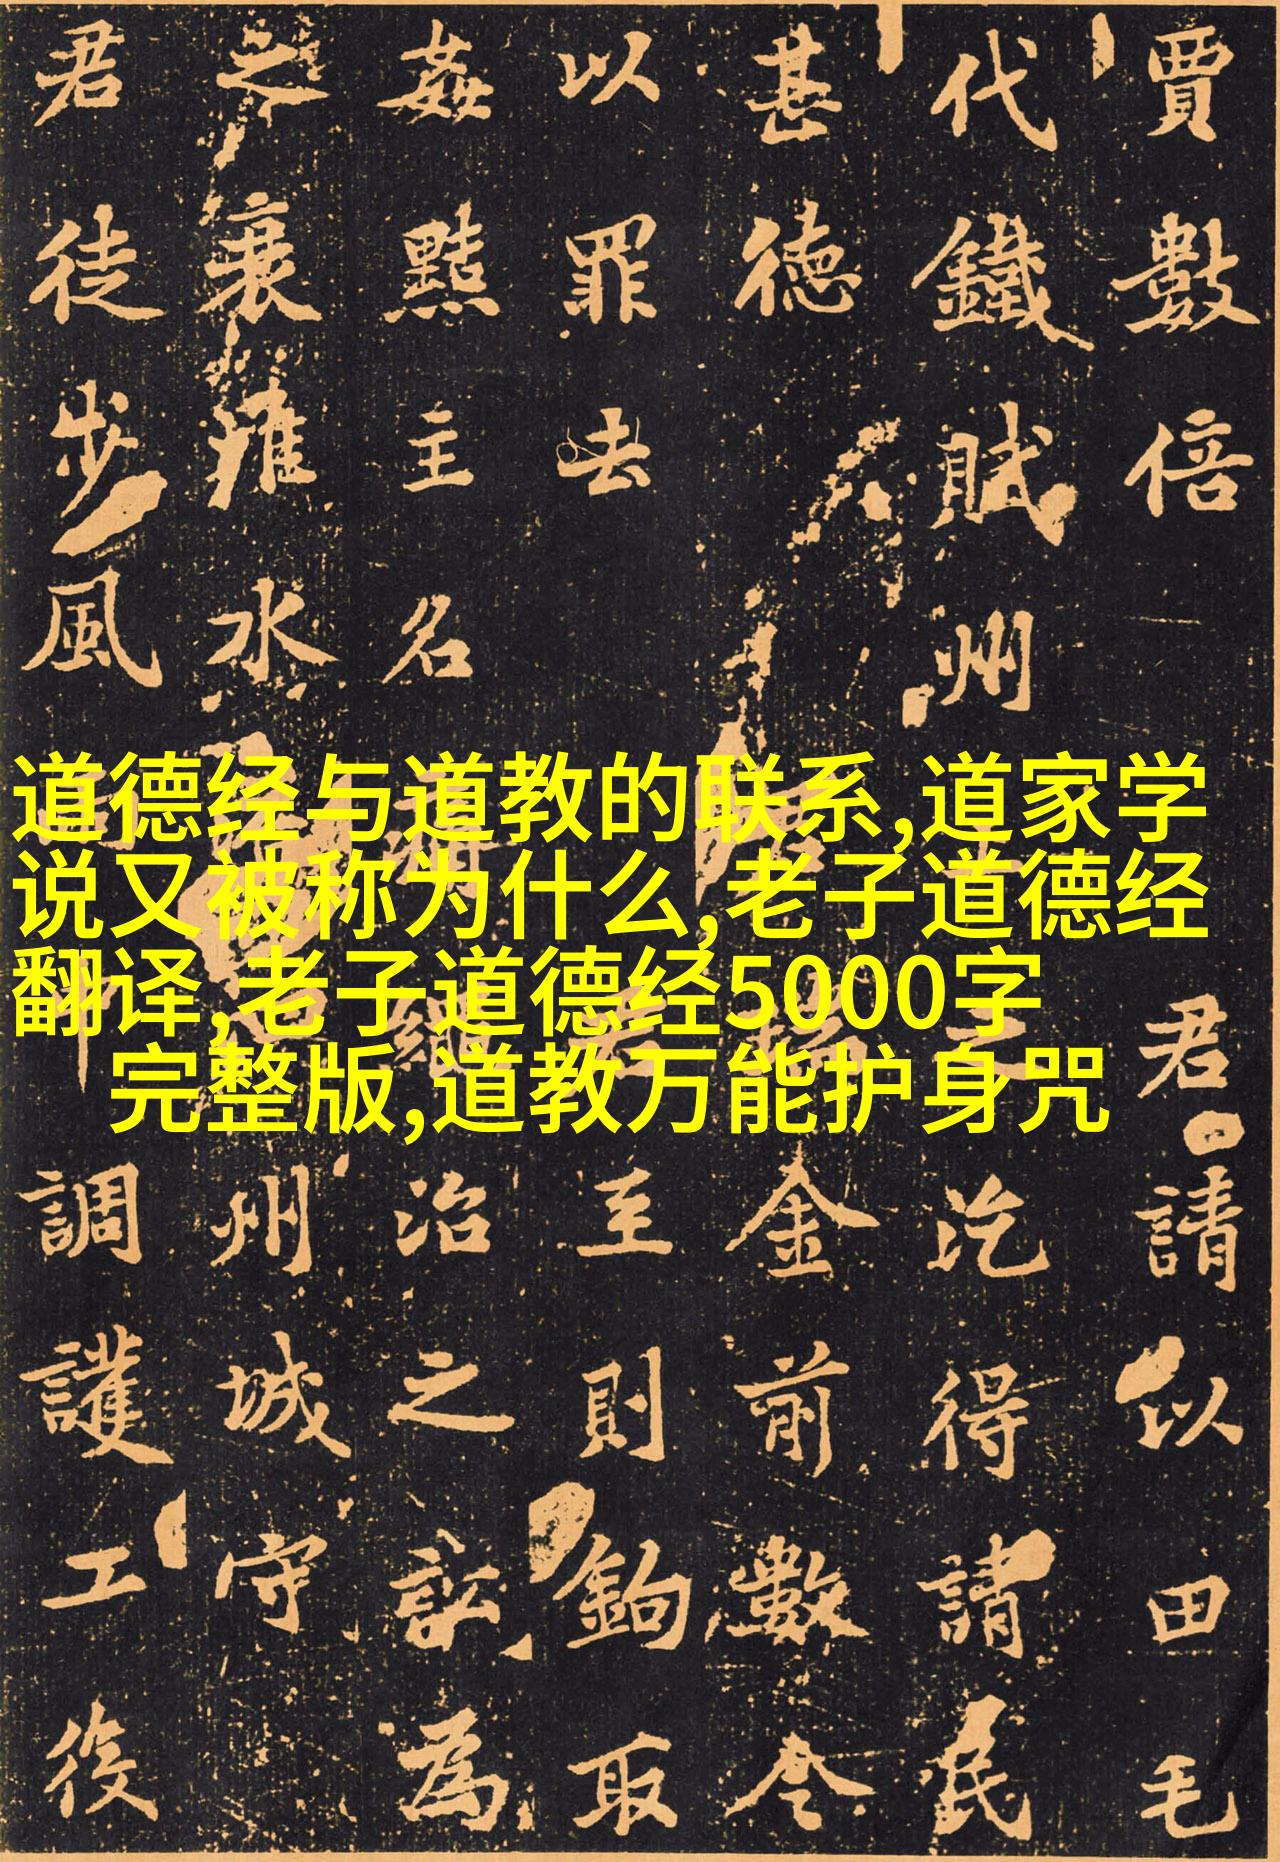 道德经与道教的联系,道家学
说又被称为什么,老子道德经
翻译,老子道德经5000字
完整版,道教万能护身咒
賈數倍君請以田毛
代鐵賦州之汔得請民
甚德金前數令
以罪去至則鉤取
姦黠主名治之訟為
之水州城守
君徒步風中調護工役